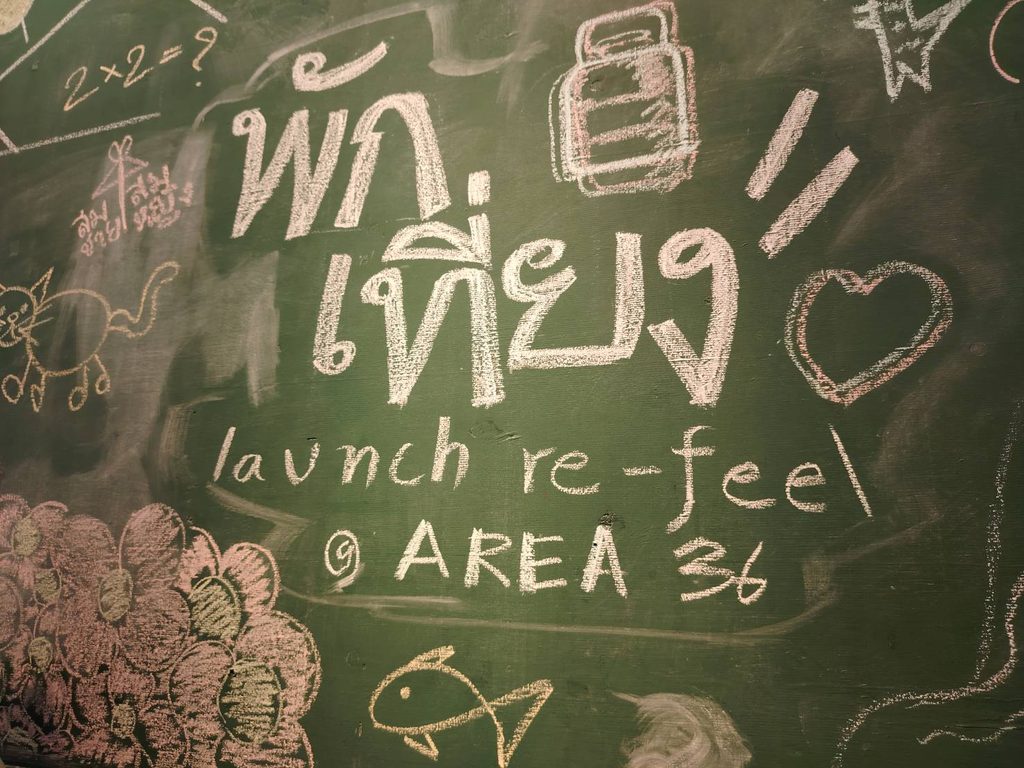 2×2=?
พักเที่ยง"
launch re-feel
@ AREA 36